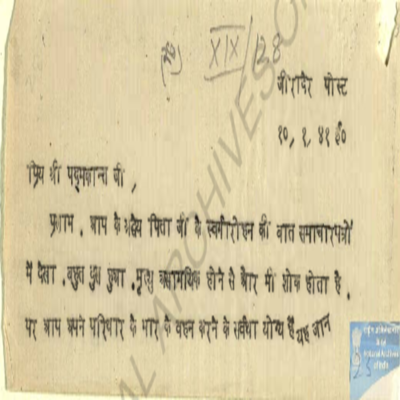 XIX/28
जीरादेर पोस्ट
१०, १, ४१ ई०
प्रिय श्री पद्मकान्त जी,
प्रणाम . आप के श्रद्धेय पिता जी के स्वर्गारोहन की बात समाचारपत्रों
में देखा . बहुत दुख हुआ . मृत्यु असामयिक होने से और भी शोक होता है .
पर आप अपने परिवार के भार के वहन करने के सर्वथा योग्य हैं यह जान
ARCHIVES